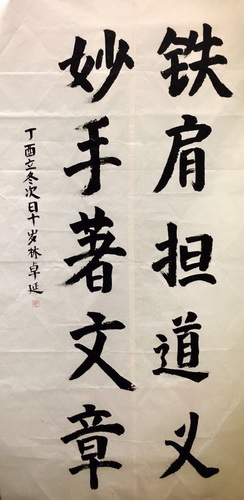 铁肩担道义
妙手著文章
丁酉立冬次日十岁林卓延